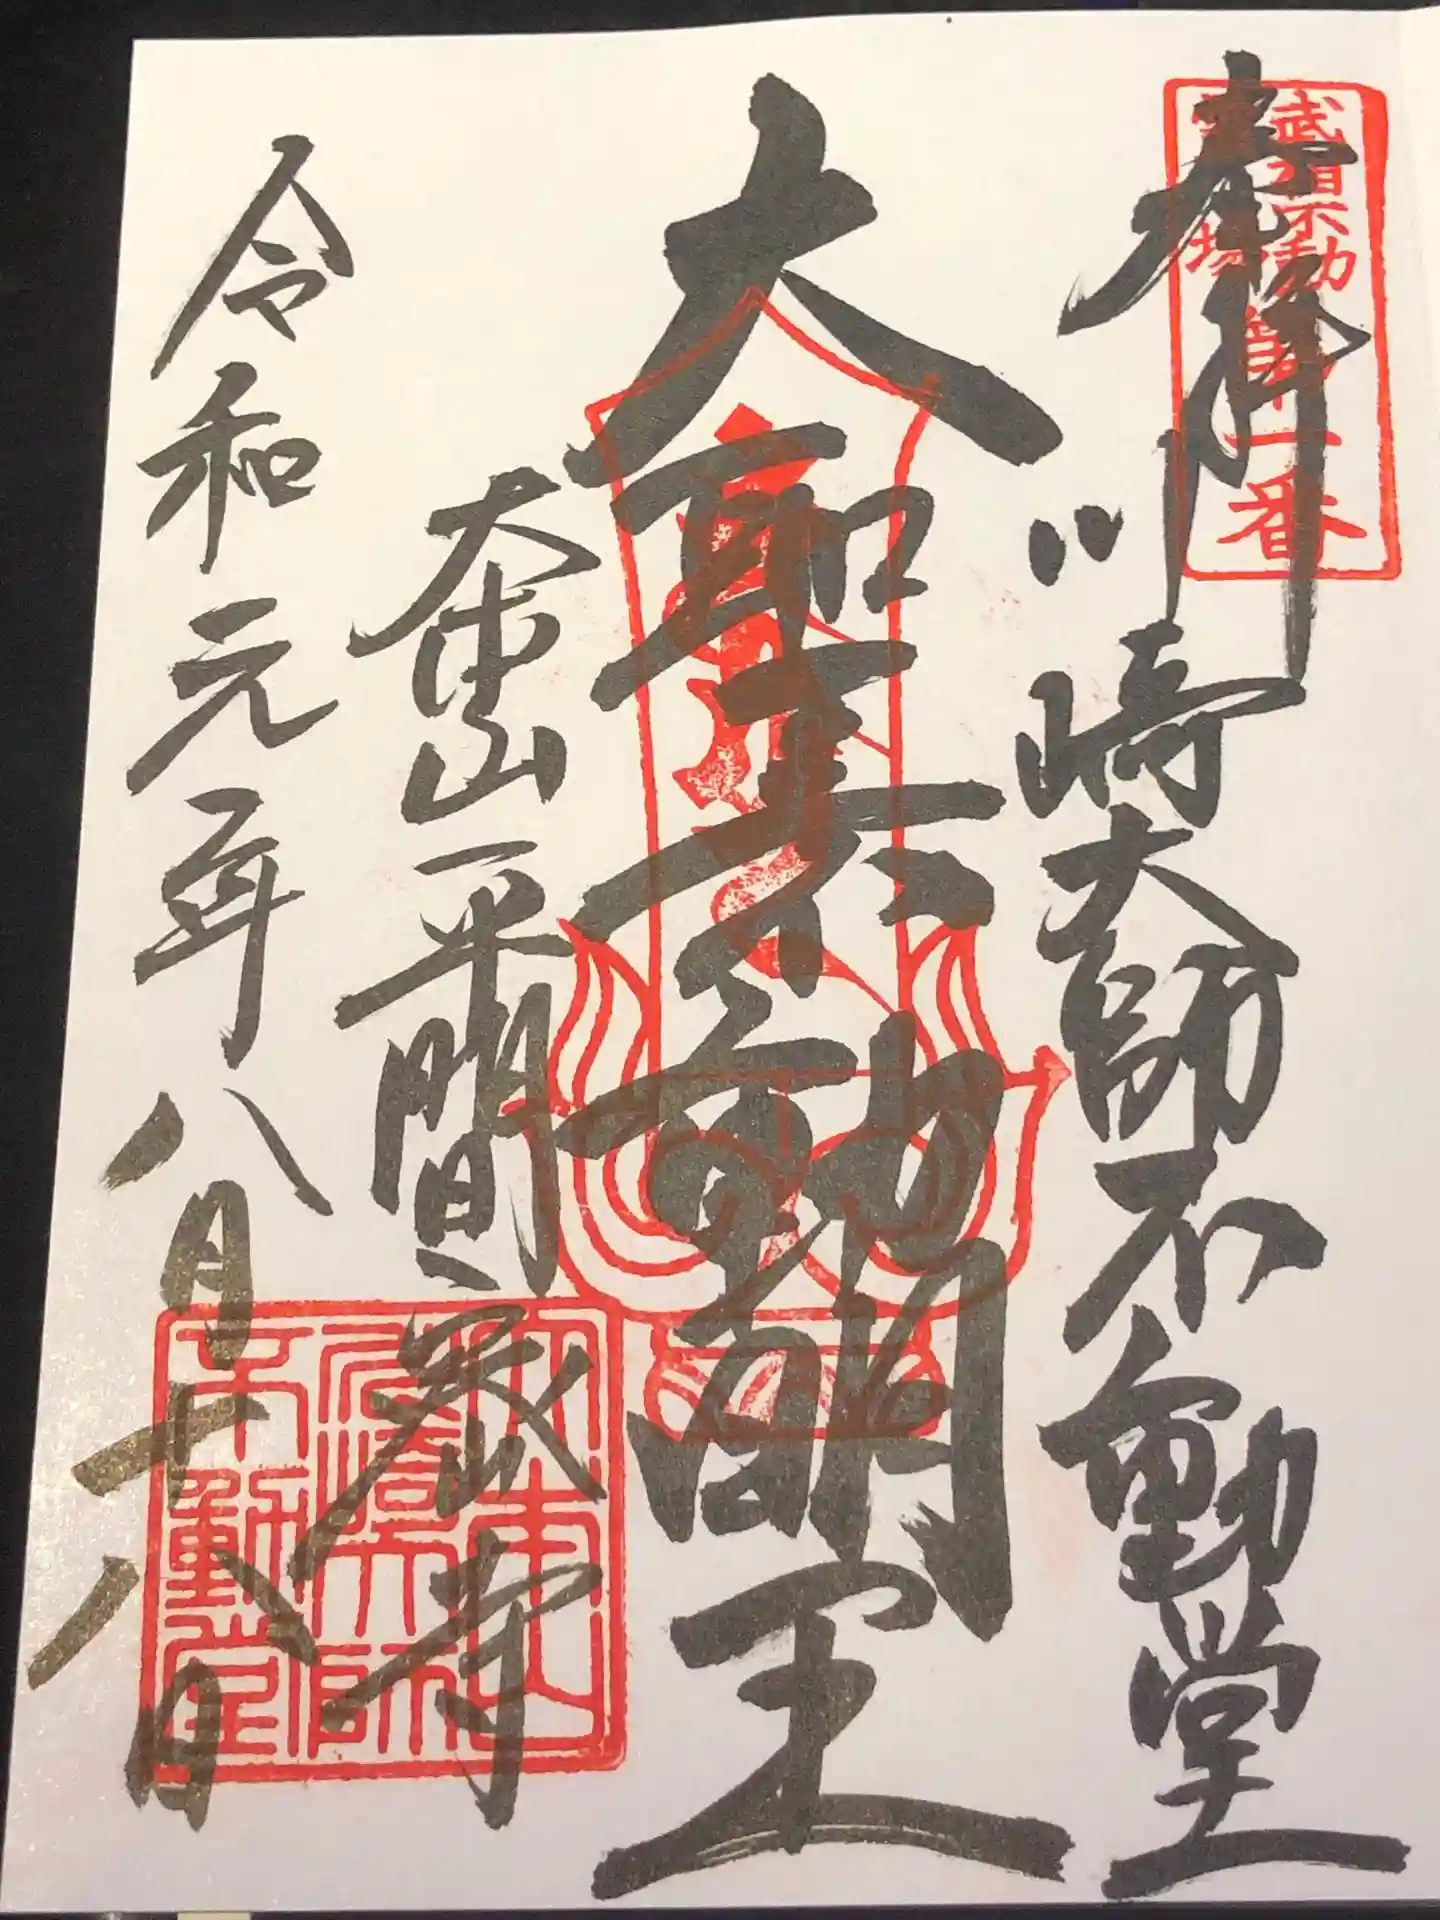 奉拝
武相不動
霊場
第一番
川崎大師不動堂
大聖不動明王
大本山平間寺
令和元年八月十八日